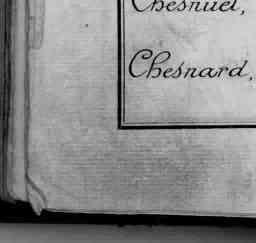 Chesnuel,
Chesnard,